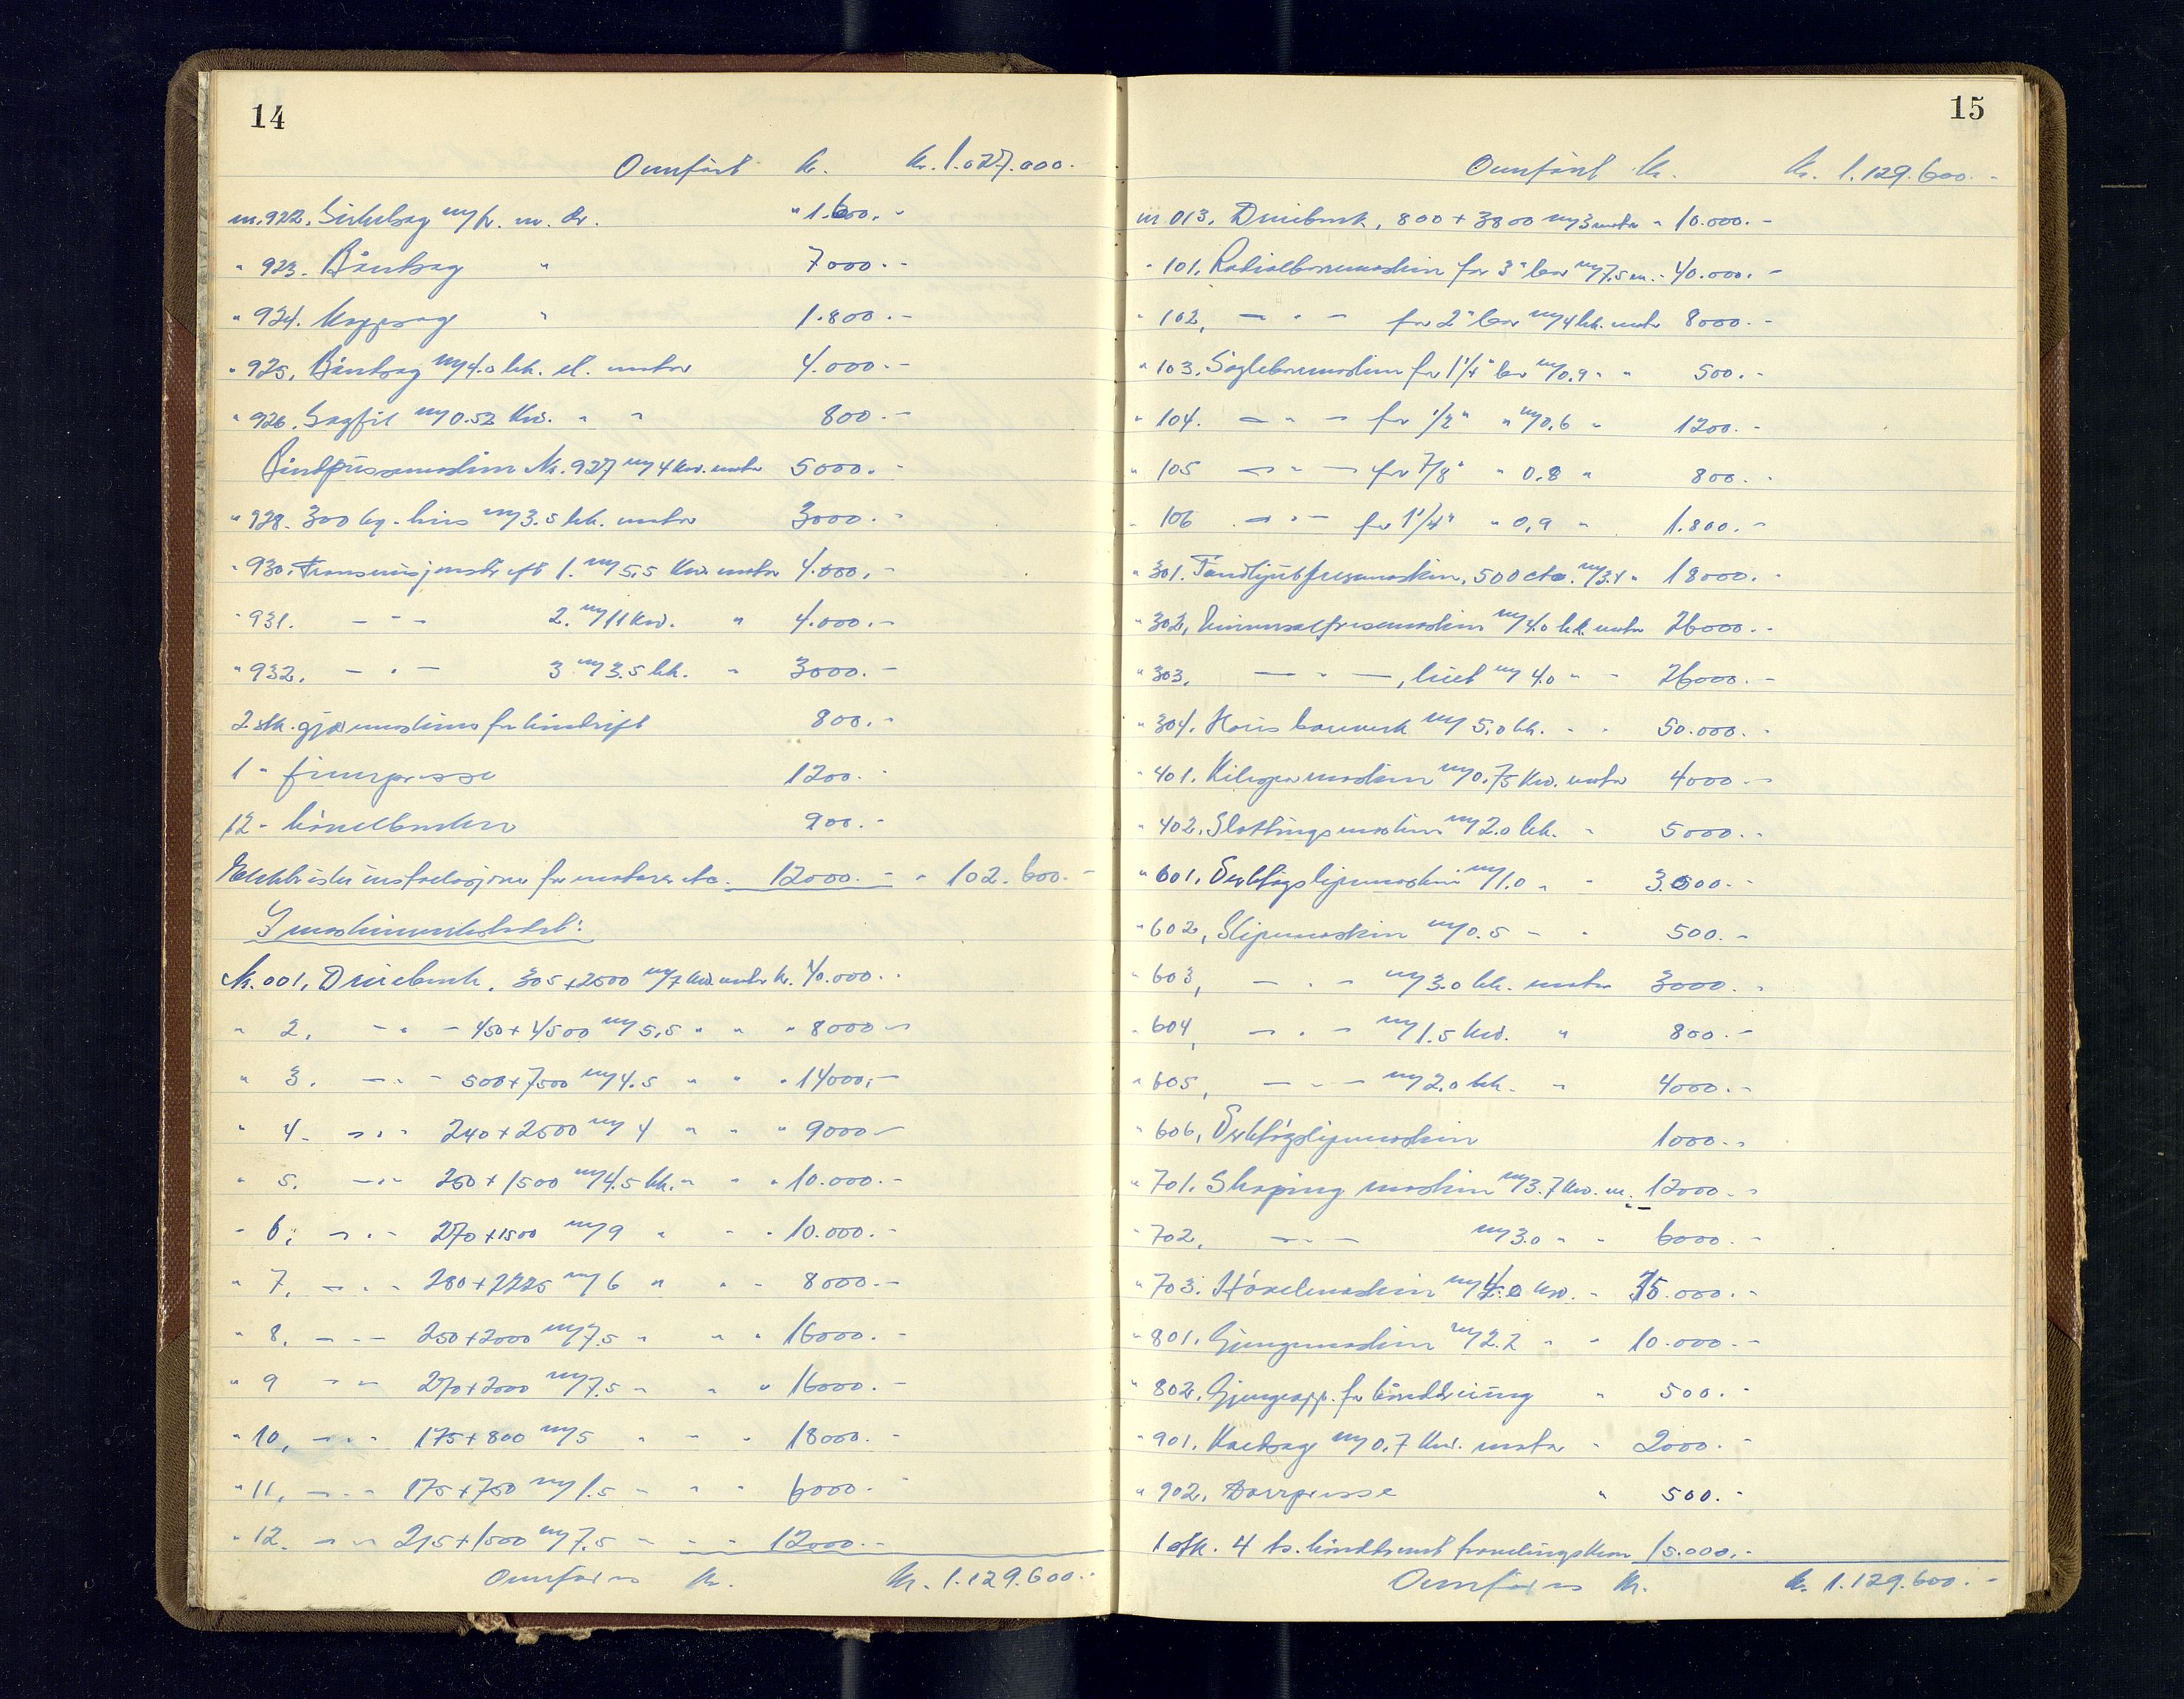 14
Overført kr. Kr. 1.027.000.-
nr. 922. Sirkelsag m/h. m. dr. " 1.600.-
" 923. Båndsag " 7000.-
" 924. Kappsag " 1.800.-
" 925. Båndsag m/4.0 hk. el. motor 4.000.-
" 926. Sagfil m/0.52 Kw. " " 800.-
Båndpussemaskin Nr. 927 m/4 Kw. motor 5000.-
" 928. 300 kg. heis m/3.5 hk. motor 3000.-
" 930. Transmisjonsdrift 1. m/5,5 Kw. motor 4.000.-
" 931. - " - 2. m/11 Kw. " 4.000.-
" 932. - " - 3 m/3.5 hk. " 3000.-
2 stk. maskiner for hånddrift 800.-
1 " finerpresse 1200.-
12 - høvelbenker 900.-
Elektriske installasjoner for motorer etc. 12000.- " 102.600.-
I maskinverkstedet:
Nr. 001. Dreiebenk. 305+2500 m/7 Kw. motor kr. 40.000.-
" 2. - " - 450+4500 m/5,5 " " " 8000.-
" 3. - " - 500+7500 m/4.5 " " " 14000.-
" 4. - " - 240+2500 m/4 " " " 9000.-
" 5. - " - 260+1500 m/4.5 hk. " " " 10.000.-
" 6. - " - 270+1500 m/9 " " " 10.000.-
" 7. - " - 280+2225 m/6 " " " 8000.-
" 8. - " - 250+2000 m/7.5 " " " 16000.-
" 9 - " - 270+2000 m/7.5 " " " 16000.-
" 10. - " - 175+800 m/5 " " " 18000.-
" 11. - " - 175+750 m/1.5 " " " 6000.-
" 12. - " - 215+1500 m/7.5 " " " 12000.-
Overføres Kr. Kr. 1.129.600.-
15
Overført Kr. Kr. 1.129.600.-
nr 013. Dreiebenk, 800+3800 m/3 motor " 10.000.-
" 101. Radialboremaskin for 3" bor m/7.5 m. " 40.000.-
" 102, - " - for 2" bor m/4 hk. motor 8000.-
" 103. Søyleboremaskin for 1 1/4" bor m/0.9 " " 500.-
" 104. - " - for 1/2" " m/0.6 " 1200.-
" 105 - " - for 7/8" " 0.8 " 800.-
" 106 - " - for 1 1/4" " 0.9 " 1.800.-
" 301. Tannhjulsfresemaskin, 500 cto. m/3.4 " 18000.-
" 302, Universalfresemaskin m/4.0 hk. motor 26000.-
" 303, - " - , m/4.0 " " 26000.-
" 304. Horis. boreverk m/5.0 hk. " " 50.000.-
" 401. Kilespormaskin m/0.75 Kw. motor 4000.-
" 402. Slottingsmaskin m/2.0 hk. " 5000.-
" 601. Verktøyslipemaskin m/1.0 " " 3.000.-
" 602, Slipemaskin m/0.5 " " 500.-
" 603, - " - m/3.0 hk. motor 3000.-
" 604, - " - m/1.5 Kw. " 800.-
" 605, - " - m/2.0 hk. " 4000.-
" 606, Verktøyslipemaskin 1000.-
" 701. Shaping maskin m/3.7 Kw. m. 12000.-
" 702, - " - m/3.0 " " 6000.-
" 703. Høvelmaskin m/4.0 Kw. " 75.000.-
" 801. Gjengemaskin m/2.2 " " 10.000.-
" 802. Gjengeapp. for hånddreining " 500.-
" 901. Kaldsag m/0.7 Kw. motor " 2000.-
" 902. Dorrpresse " 500.-
1 stk. 4 ts. hånddrevet traverskran 15.000.-
Overføres Kr. Kr. 1.129.600.-